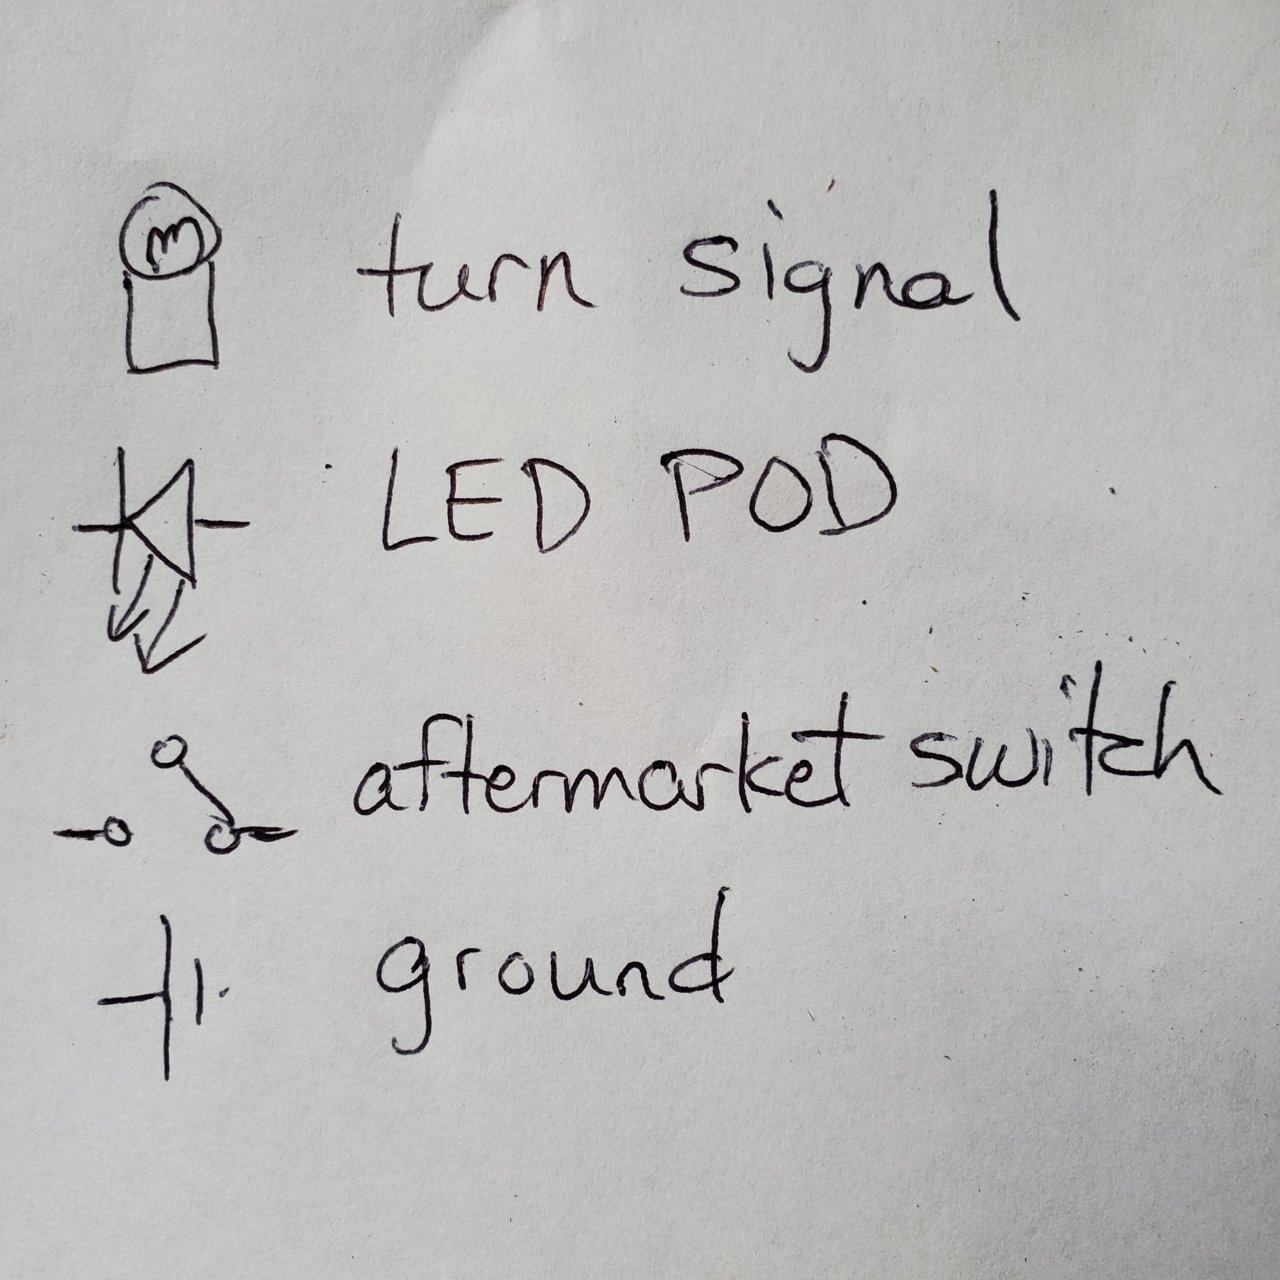 m turn signal
LED POD
aftermarket switch
ground